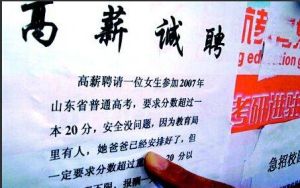 高薪诚聘
高薪聘请一位女生参加2007年
山东省普通高考，要求分数超过一
本20分，安全没问题，因为教育局
里有人，她爸爸已经安排好了，但
一定要求分数超过重 20分以
ng education g
考研进驻
急招校